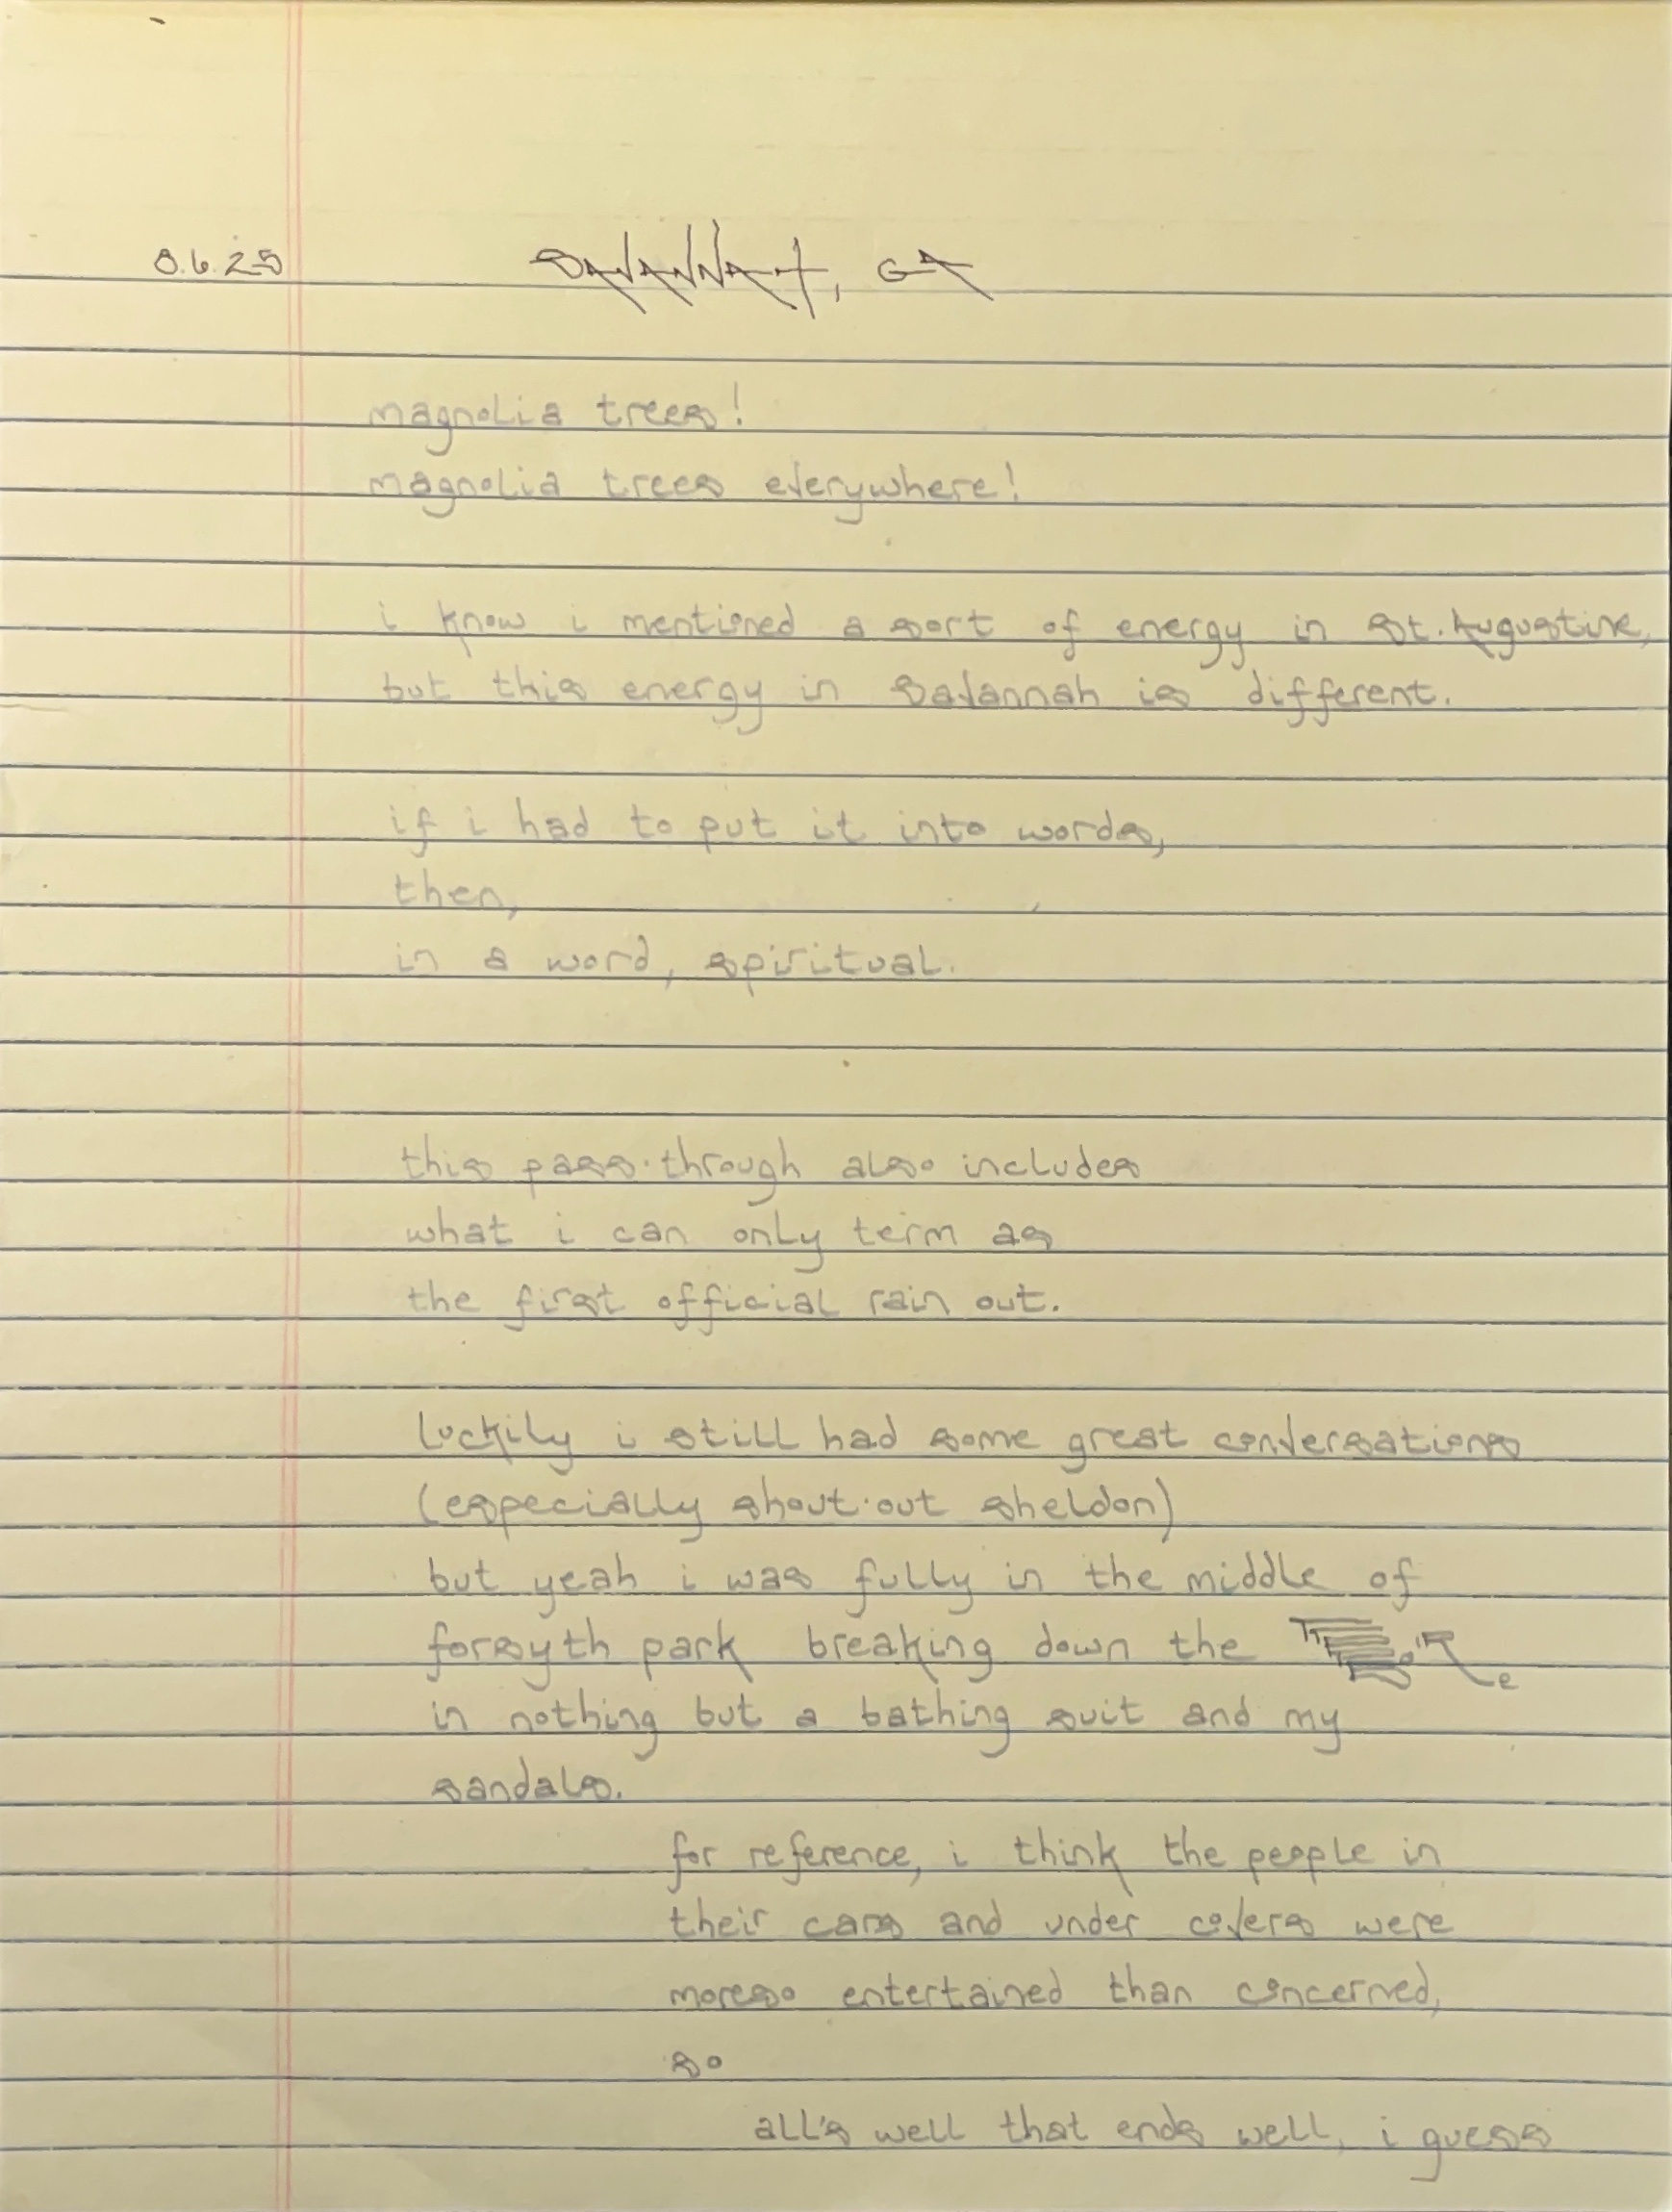 8.6.25 SAVANNAH, GA
magnolia trees!
magnolia trees everywhere!
i know i mentioned a sort of energy in St. Augustine,
but this energy in Savannah is different.
if i had to put it into words,
then,
in a word, spiritual.
this pass·through also includes
what i can only term as
the first official rain out.
luckily i still had some great conversations
(especially shout·out sheldon)
but yeah i was fully in the middle of
forsyth park breaking down the
in nothing but a bathing suit and my
sandals.
for reference, i think the people in
their cars and under covers were
moreso entertained than concerned,
so
all's well that ends well, i guess